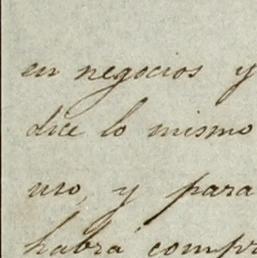 en negocios y
dice lo mismo
uso, y para
habrá compr